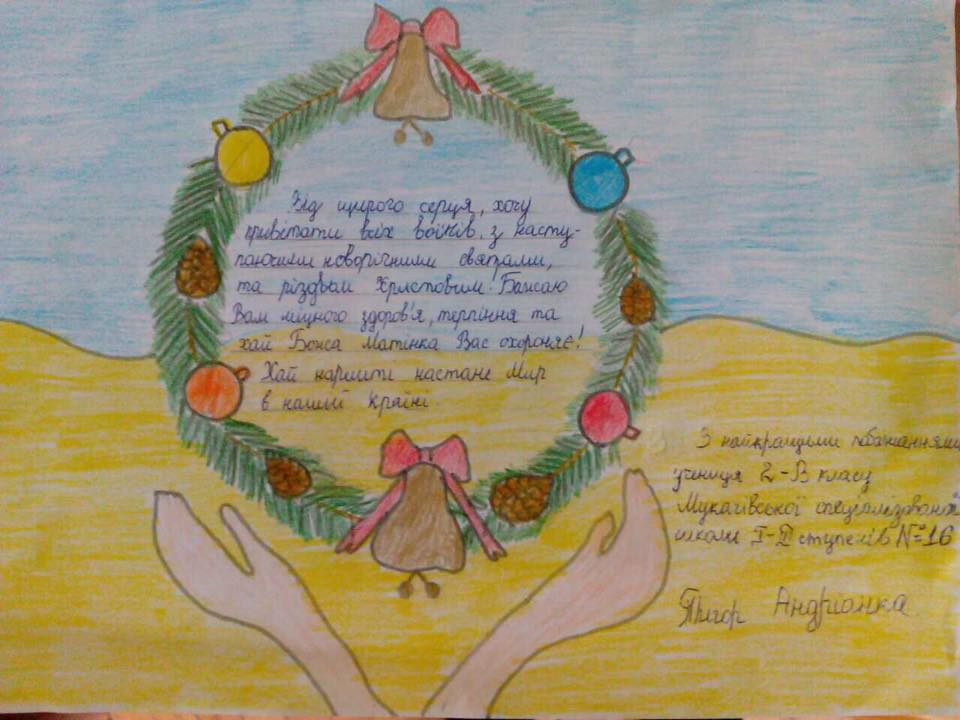 Від щирого серця, хочу
привітати всіх воїнів, з насту-
паючими новорічними святами,
та різдвом Христовим! Бажаю
Вам міцного здоров'я, терпіння та
хай Божа Матінка Вас охороняє!
Хай нарешті настане Мир
в нашій країні.
З найкращими побажаннями
учениця 2-В класу
Мукачівської спеціалізованої
школи I-II ступенів №16
Андріанка